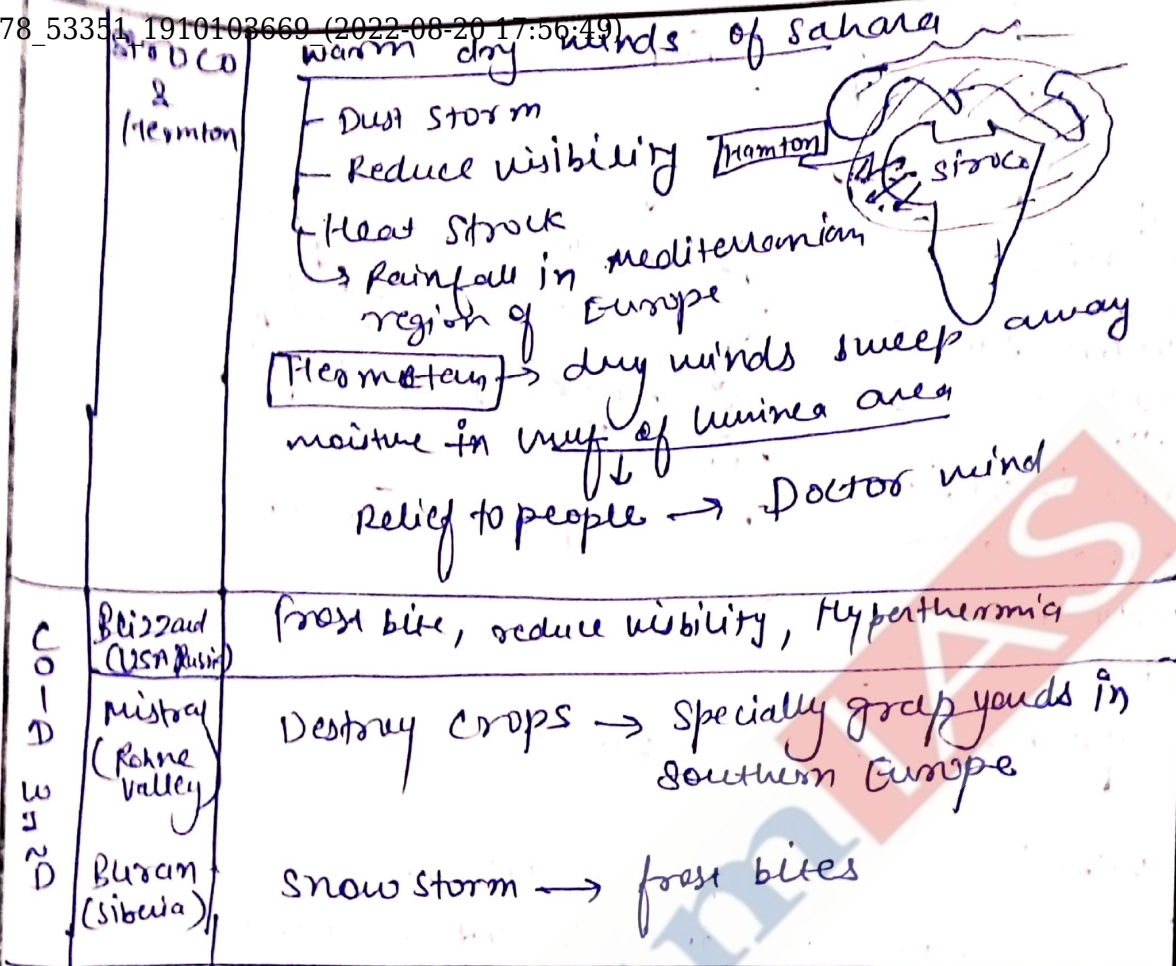 78_53351_1910103669_(2022-08-20 17:56:49)
Siroco
&
Hermton
warm dry winds of Sahara
- Dust storm
- Reduce visibility
Hamton
siroco
- Heat Strock
→ Rainfall in mediterranian
region of Europe
Hermetan → dry winds sweep away
moisture in of Guinea area
↓
Relief to people → Doctor wind
COLD WIND
Blizzard
(USA Rusia)
frost bite, reduce visbility, Hyperthermia
Mistral
(Rohne
valley)
Destroy crops → Specially grap yards in
Southern Europe
Buran
(Siberia)
Snow storm → frost bites
mIAS